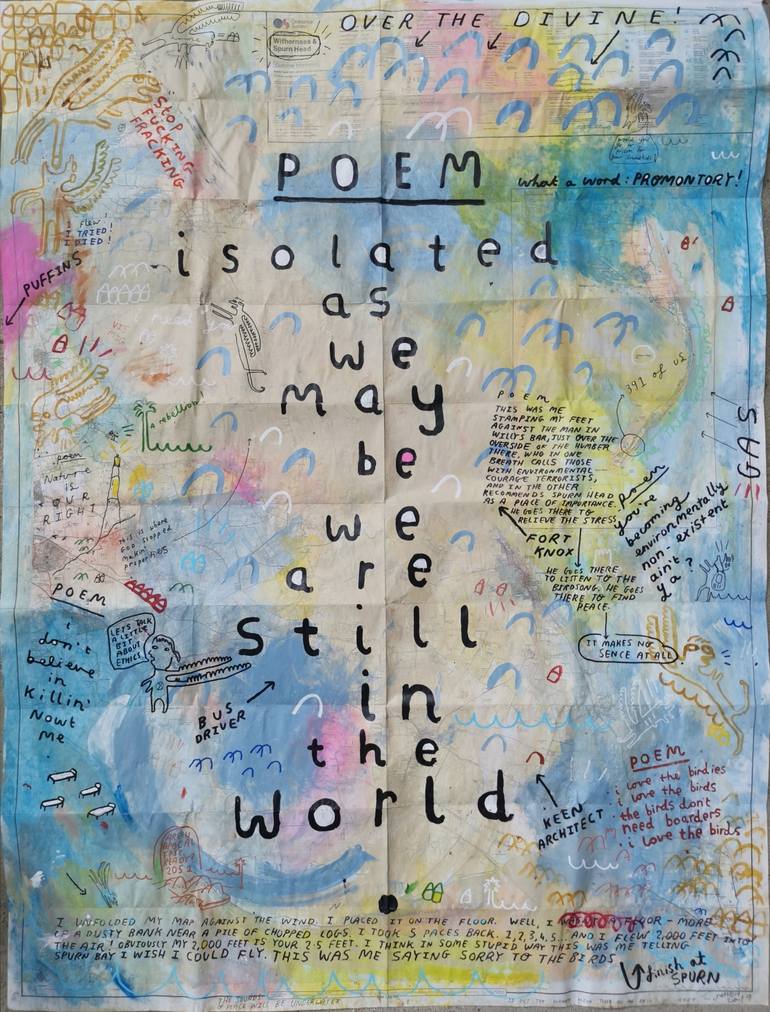 OVER THE DIVINE!
Withernsea &
Spurn Head
STOP
FUCKING
FRACKING
POEM
what a word: PROMONTORY!
I FLEW!
I TRIED!
I DIED!
PUFFINS
isolated
as
we
may
be
we
are
still
in
the
world
a rebellion!
391 of us
GAS
POEM
THIS WAS ME
STAMPING MY FEET
AGAINST THE MAN IN
WILLY'S BAR, JUST OVER THE
OVERSIDE OF THE HUMBER
THERE, WHO IN ONE
BREATH CALLS THOSE
WITH ENVIRONMENTAL
COURAGE TERRORISTS,
AND IN THE OTHER
RECOMMENDS SPURN HEAD
AS A PLACE OF IMPORTANCE.
HE GOES THERE TO
RELIEVE THE STRESS.
FORT
KNOX
HE GOES THERE
TO LISTEN TO THE
BIRDSONG. HE GOES
THERE TO FIND
PEACE.
IT MAKES NO
SENCE AT ALL!
poem
you're
becoming
environmentally
non-existent
ain't
ya?
poem
Nature
IS
OUR
RIGHT
this is where
GOD stopped
makin'
properties
POEM
i
don't
believe
in
killin'
nowt
me
LETS TALK
A LITTLE
BIT
ABOUT
ETHICS
BUS
DRIVER
KEEN
ARCHITECT
POEM
i love the birdies
i love the birds
the birds don't
need boarders
i love the birds
I UNFOLDED MY MAP AGAINST THE WIND. I PLACED IT ON THE FLOOR. WELL, I FLOOR - MORE
OF A DUSTY BANK NEAR A PILE OF CHOPPED LOGS. I TOOK 5 PACES BACK. 1,2,3,4,5. AND I FLEW 2,000 FEET INTO
THE AIR! OBVIOUSLY MY 2,000 FEET IS YOUR 2.5 FEET. I THINK IN SOME STUPID WAY THIS WAS ME TELLING
SPURN BAY I WISH I COULD FLY. THIS WAS ME SAYING SORRY TO THE BIRDS
finish at
SPURN
PLACE WILL BE UNDERWATER